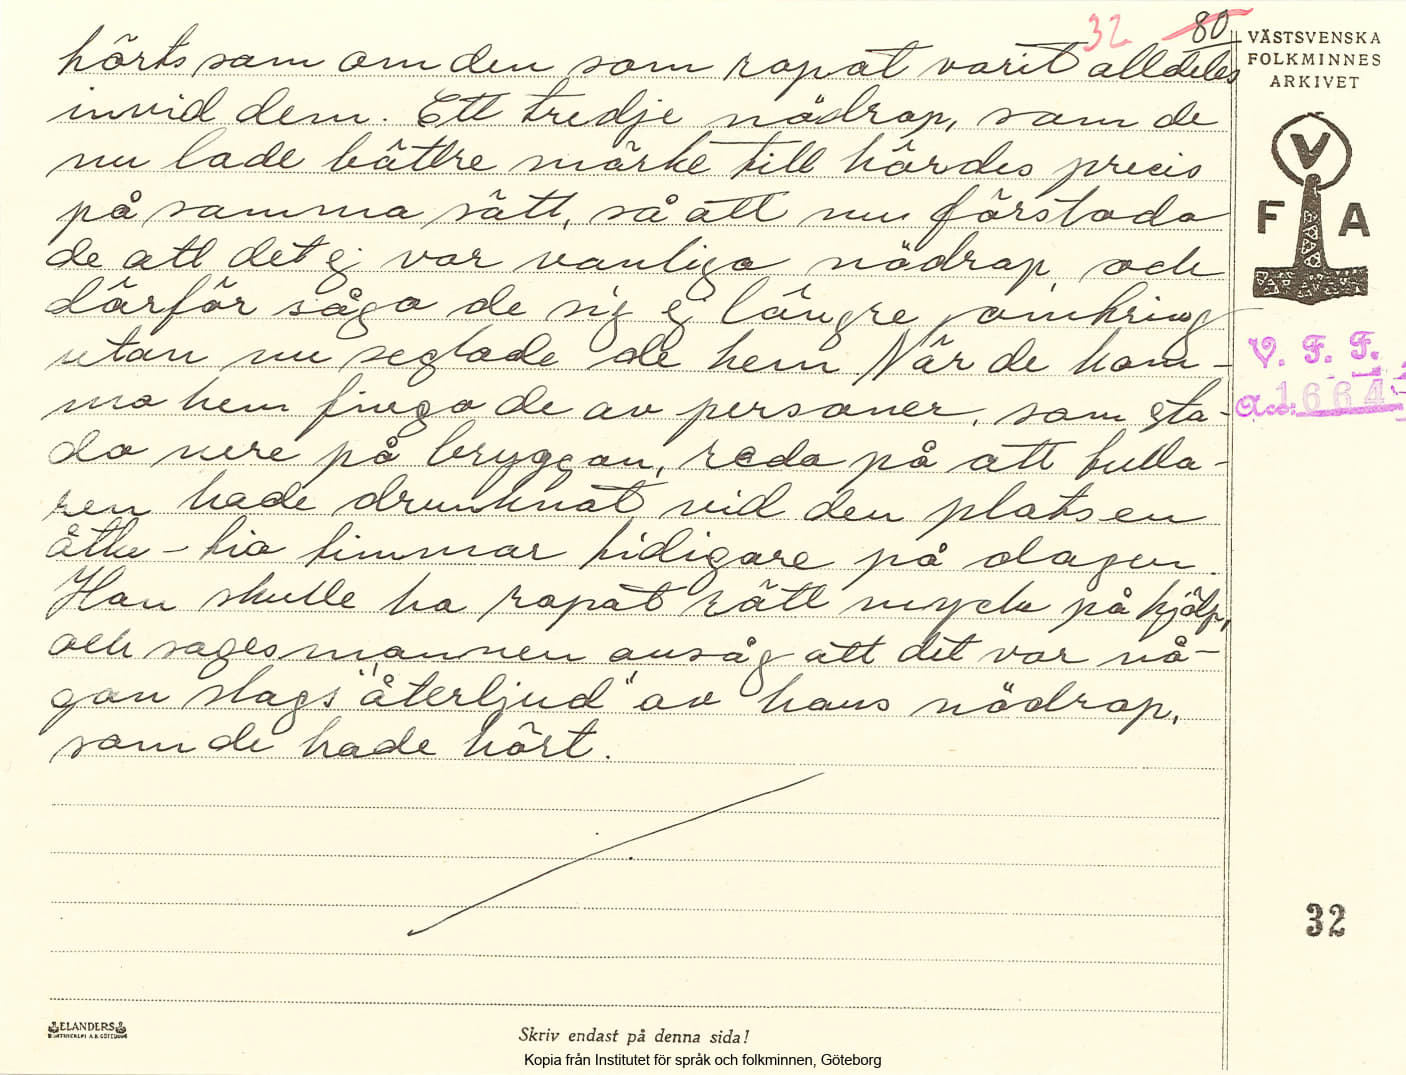 32 80
hörts som om den som ropat varit alldeles
invid dem. Ett tredje nödrop, som de
nu lade bättre märke till hördes precis
på samma sätt, så att nu förstodo
de att det ej var vanliga nödrop och
därför sågo de sig ej längre omkring
utan nu seglade de hem När de kom-
mo hem fingo de av personer, som sto-
do nere på bryggan, reda på att fulla-
ren hade drunknat vid den platsen
åtta - tio timmar tidigare på dagen.
Han skulle ha ropat rätt mycke på hjälp,
och sagesmannen ansåg att det var nå-
gon slags "återljud" av hans nödrop,
som de hade hört.
VÄSTSVENSKA
FOLKMINNES
ARKIVET
V
F A
V. F. F.
Acc: 1664
32
ELANDERS
Skriv endast på denna sida!
Kopia från Institutet för språk och folkminnen, Göteborg